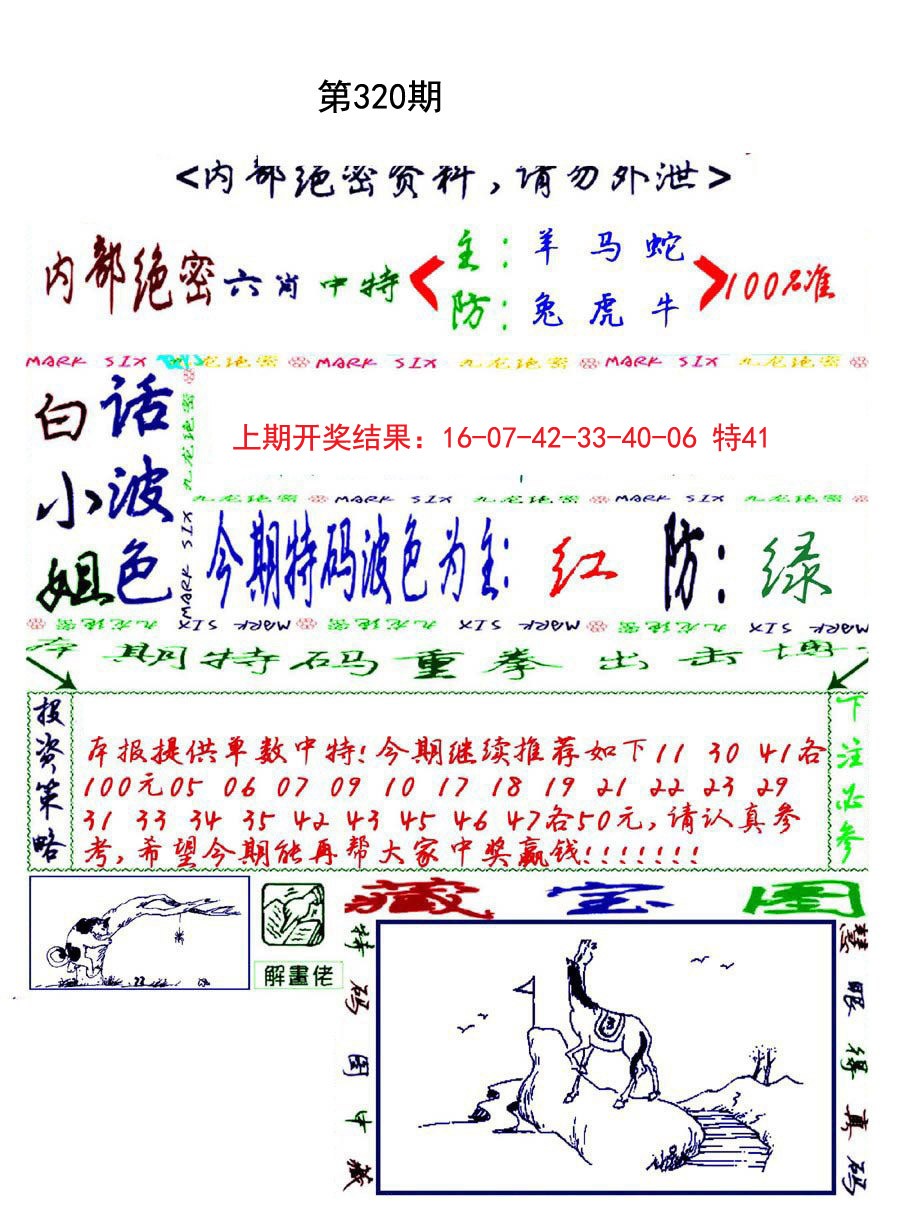 第320期
<内部绝密资料,请勿外泄>
内部绝密六肖中特
主:羊马蛇
防:兔虎牛
100%准
MARK SIX 九龙绝密 MARK SIX 九龙绝密 MARK SIX 九龙绝密
白小姐
话波色
九龙绝密
MARK SIX
上期开奖结果：16-07-42-33-40-06 特41
九龙绝密 MARK SIX 九龙绝密 MARK SIX 九龙绝密
今期特码波色为主:红 防:绿
九龙绝密 MARK SIX 九龙绝密 九龙绝密 MARK SIX 九龙绝密 MARK SIX
本期特码重拳出击博
投资策略
本报提供单数中特!今期继续推荐如下11 30 41各
100元05 06 07 09 10 17 18 19 21 22 23 29
31 33 34 35 42 43 45 46 47各50元,请认真参
考,希望今期能再帮大家中奖赢钱!!!!!!!
下注必参
解畫佬
藏宝图
特码图中藏
慧眼得真码